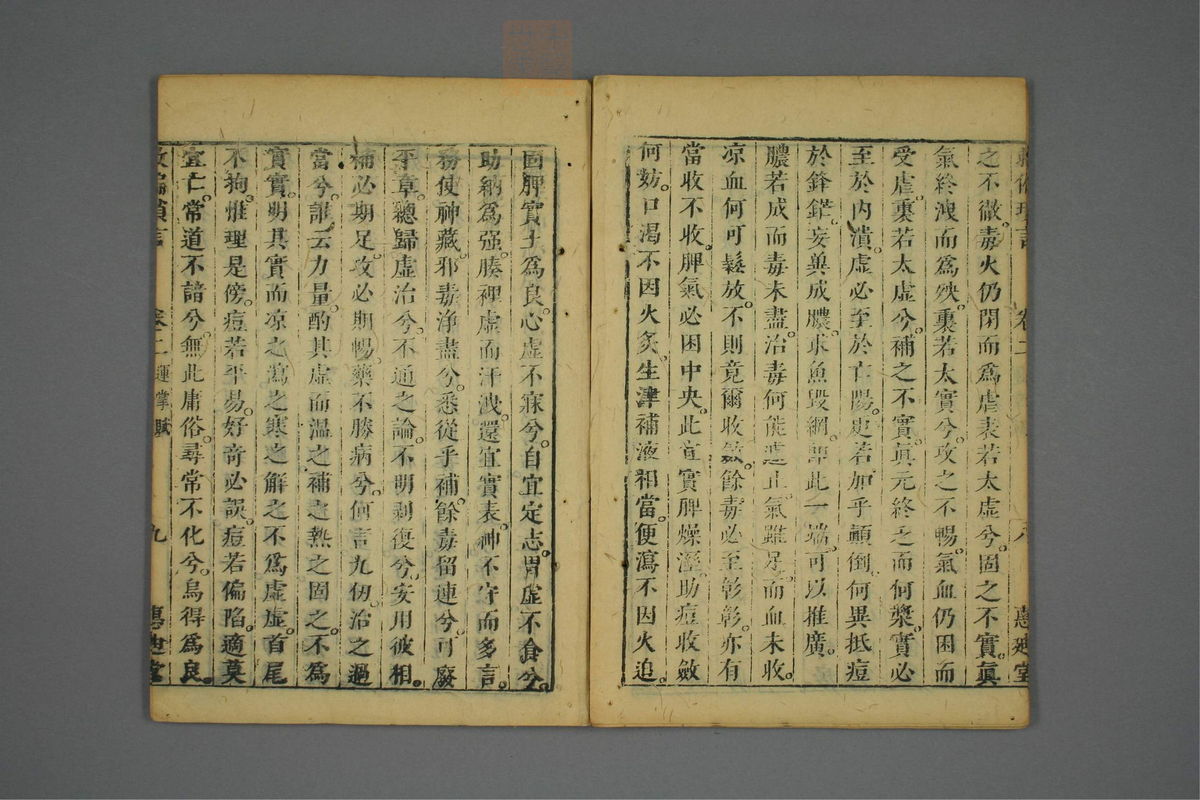 之不徹毒火仍閉而爲虐表若太虛兮固之不實眞
氣終洩而爲殃裏若太實兮攻之不暢氣血仍困而
受虐裏若太虛兮補之不實眞元終乏而何漿實必
至於內潰虛必至於亡陽更若加乎顚倒何異抵痘
於鋒鋩妄冀成膿求魚毀綱 此一端可以推廣
膿若成而毒未盡治毒何能 止氣雖足而血未收
凉血何可鬆放不則竟爾收斂餘毒必至彰彰亦有
當收不收脾氣必困中央此宜實脾燥溼助痘收斂
何妨口渴不因火炙生津補液相當便瀉不因火追
固脾實土爲良心虛不寐兮自宜定志胃虛不食兮
助納爲强腠裡虛而汗洩還宜實表神不守而多言
務使神藏邪毒淨盡兮悉從乎補餘毒留連兮可廢
平章總歸虛治兮不通之論不明剥復兮安用彼相
補必期足攻必期暢藥不勝病兮何言九仞治之過
當兮誰云力量酌其虛而溫之補之熱之固之不爲
實實明其實而凉之瀉之寒之解之不爲虛虛首尾
不拘惟理是傍痘若平易好奇必誤痘若偏陷適莫
宜亡常道不諳兮無此庸俗尋常不化兮烏得爲良
卷二 運掌賦 九 惠廸堂